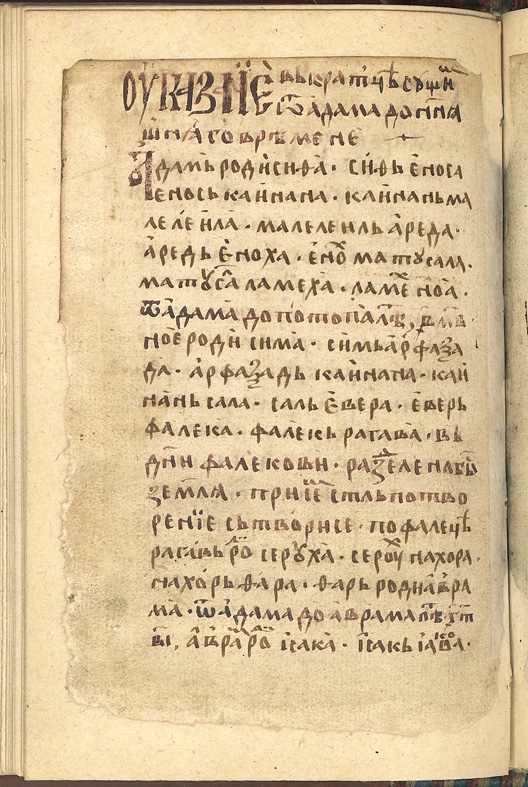 ѹказанїе въкратцѣ сѹщи
ѿ адама до нн҃ѧ
шнѧго врѣмене
Адамь роди сиѳа · сиѳь еноса
еносъ каинана · каинань ма
лелеила · малелеиль ареда ·
аредь еноха · енѡ ма тусала ·
матусла ламеха · ламе ноа ·
ѿ адама до потопа лѣ ҂вмв
ное роди сима · симь арфаѯа
да · арфаѯадь каинана · каи
нань сала · саль евера · еверь
фалека · фалекь рагава · въ
дни фалекови · разделена бы
землѧ · прнїе стльпотво
ренїе сьтворисе · по фалецѣ
рагавь ро серѹха · серѹ нахора ·
нахорь ѳара · ѳарь роди авра
ма · ѿ адама до аврама
авра ро їсака · їсакь їаѡва ·